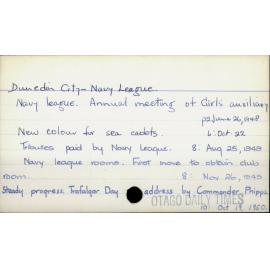 Dunedin City - Navy League.
Navy League. Annual meeting of Girls auxiliary
p2 June 26, 1948
New colour for sea cadets. 6: Oct 22
Tributes paid by Navy League. 8: Aug 25, 1949
Navy League rooms. First move to obtain club
room. 8: Nov 26, 1949
Steady progress Trafalgar Day address by Commander Phipps.
OTAGO DAILY TIMES
10: Oct 19, 1950.